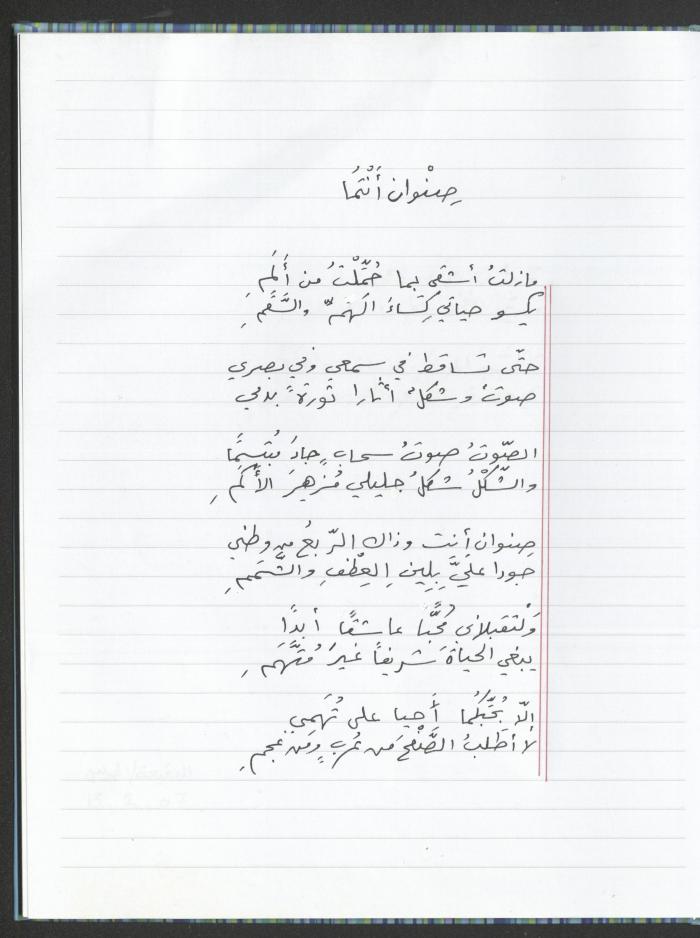 صِنْوان أَنْتُمَا
مازلتُ أشقى بما حُمِّلْتُ من أَلَمِ
يكسو حياتي كِسَاءَ الهَمِّ والسَّقَمِ
حتّى تساقط في سمعي وفي بصري
صوتٌ وشكلٌ أثارا ثورةً بدمي
الصّوتُ صوتُ سحابٍ جادَ مُبْتسِمًا
والشّكْلُ شكلُ جليلي مُزهِرَ الأَكَمِ
صِنوان أنت وذاك الرّبعُ من وطني
جودا عليَّ بِلِينِ العِطْفِ والشَّمَمِ
وَلْتقبلاني مُحِّبا عاشقًا أبدًا
يبغي الحياةَ شريفاً غيرَ مُتَّهَمِ
إلّا بحُبِّكُما أَحيا على تُهَمي
لا أطلبُ الصَّفْحَ من عُربٍ ومن عجمِ